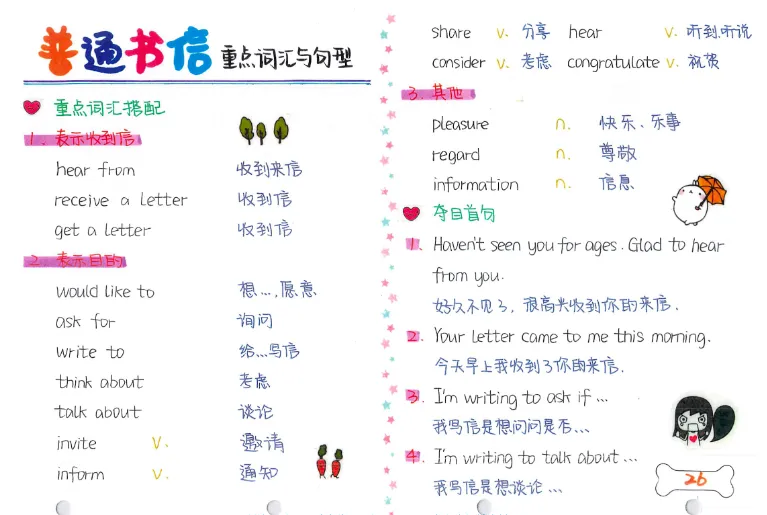 普通书信 重点词汇与句型
重点词汇搭配
1. 表示收到信
hear from 收到来信
receive a letter 收到信
get a letter 收到信
2. 表示目的
would like to 想...,愿意
ask for 询问
write to 给...写信
think about 考虑
talk about 谈论
invite v. 邀请
inform v. 通知
share v. 分享 hear v. 听到.听说
consider v. 考虑 congratulate v. 祝贺
3. 其他
pleasure n. 快乐、乐事
regard n. 尊敬
information n. 信息
夺目首句
1. Haven't seen you for ages. Glad to hear
from you.
好久不见了，很高兴收到你的来信.
2. Your letter came to me this morning.
今天早上我收到了你的来信.
3. I'm writing to ask if ...
我写信是想问问是否...
4. I'm writing to talk about ...
我写信是想谈论 ...
26